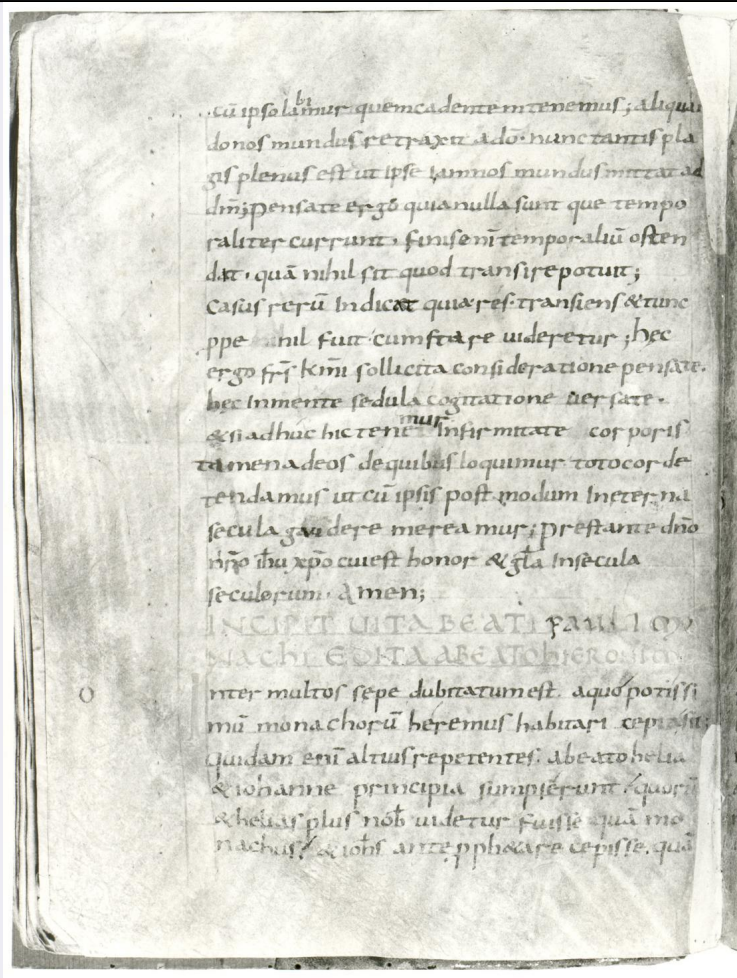 cū ipso labimur quem cadentem tenemus; aliquan
do nos mundus retraxit a dō. nunc tantis pla
gis plenus est ut ipse iam nos mundus mittat ad
dm̄; Pensate ergo quia nulla sunt que tempo
raliter currunt. finis enī temporaliū osten
dit. quā nihil sit quod transire potuit;
Casus rerū Indicat quia res transiens & tunc
ppe nihil fuit cum stare uideretur; hec
ergo frs̄ km̄i sollicita consideratione pensate.
hec In mente sedula cogitatione uersate.
& si adhuc hic tenemur Infirmitate corporis
tamen ad eos de quibus loquimur toto corde
tendamus ut cū ipsis post modum In eterna
secula gaudere mereamur; prestante dn̄o
nr̄o ih̄u xp̄o cui est honor & gl̄a In secula
seculorum. Amen;
INCIPIT UITA BEATI PAULI MO
NACHI EDITA A BEATO HIERONIMO
Inter multos sepe dubitatum est. a quo potissi
mū monachorū heremus habitari cepta sit;
Quidam enī altius repetentes. a beato helia
& iohanne principia sumpserunt; quorū
& helias plus nob̄ uidetur fuisse quā mo
nachus; & ioh̄s ante pphetare cepisse. quā
O